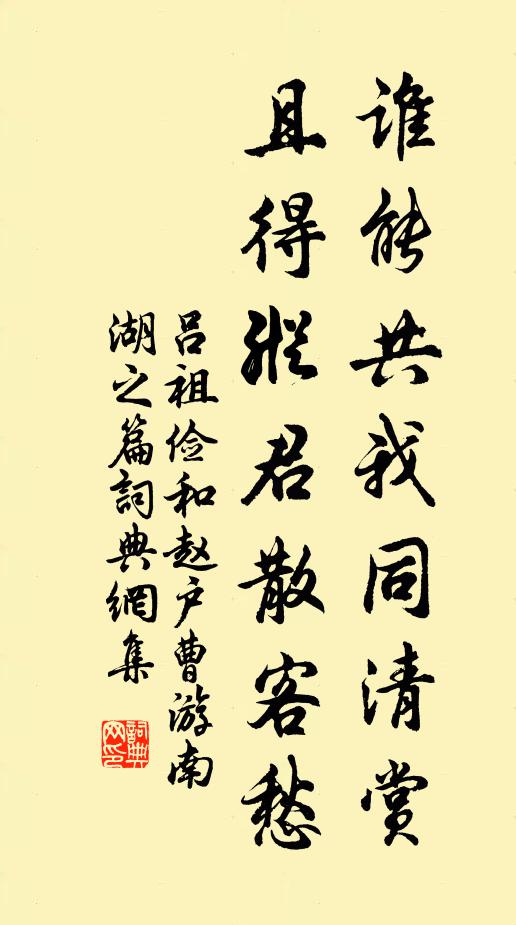 谁能共我同清赏
且得纵君散客愁
吕祖俭和赵户曹游南
湖之篇詞典網集
詞典
网印